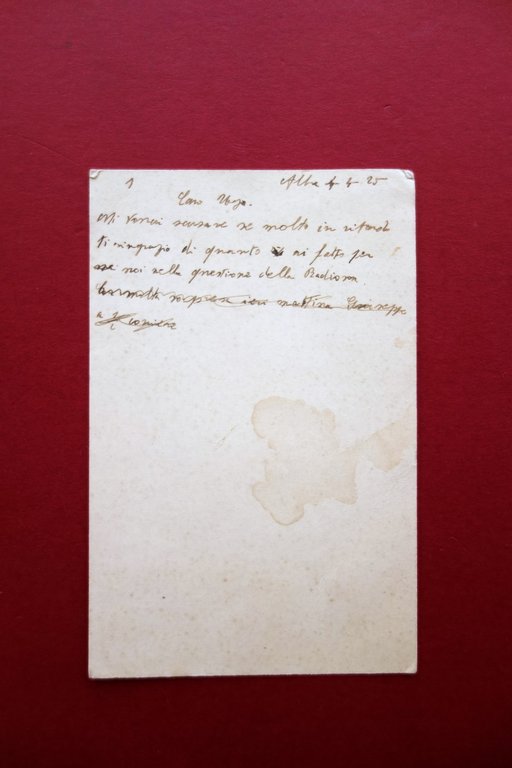 1 Alba 4 4 25
Caro Ugo.
Mi vorrai scusare se molto in ritardo
ti ringrazio di quanto ai fatto per
noi nella questione della
ieri mattina Giuseppe